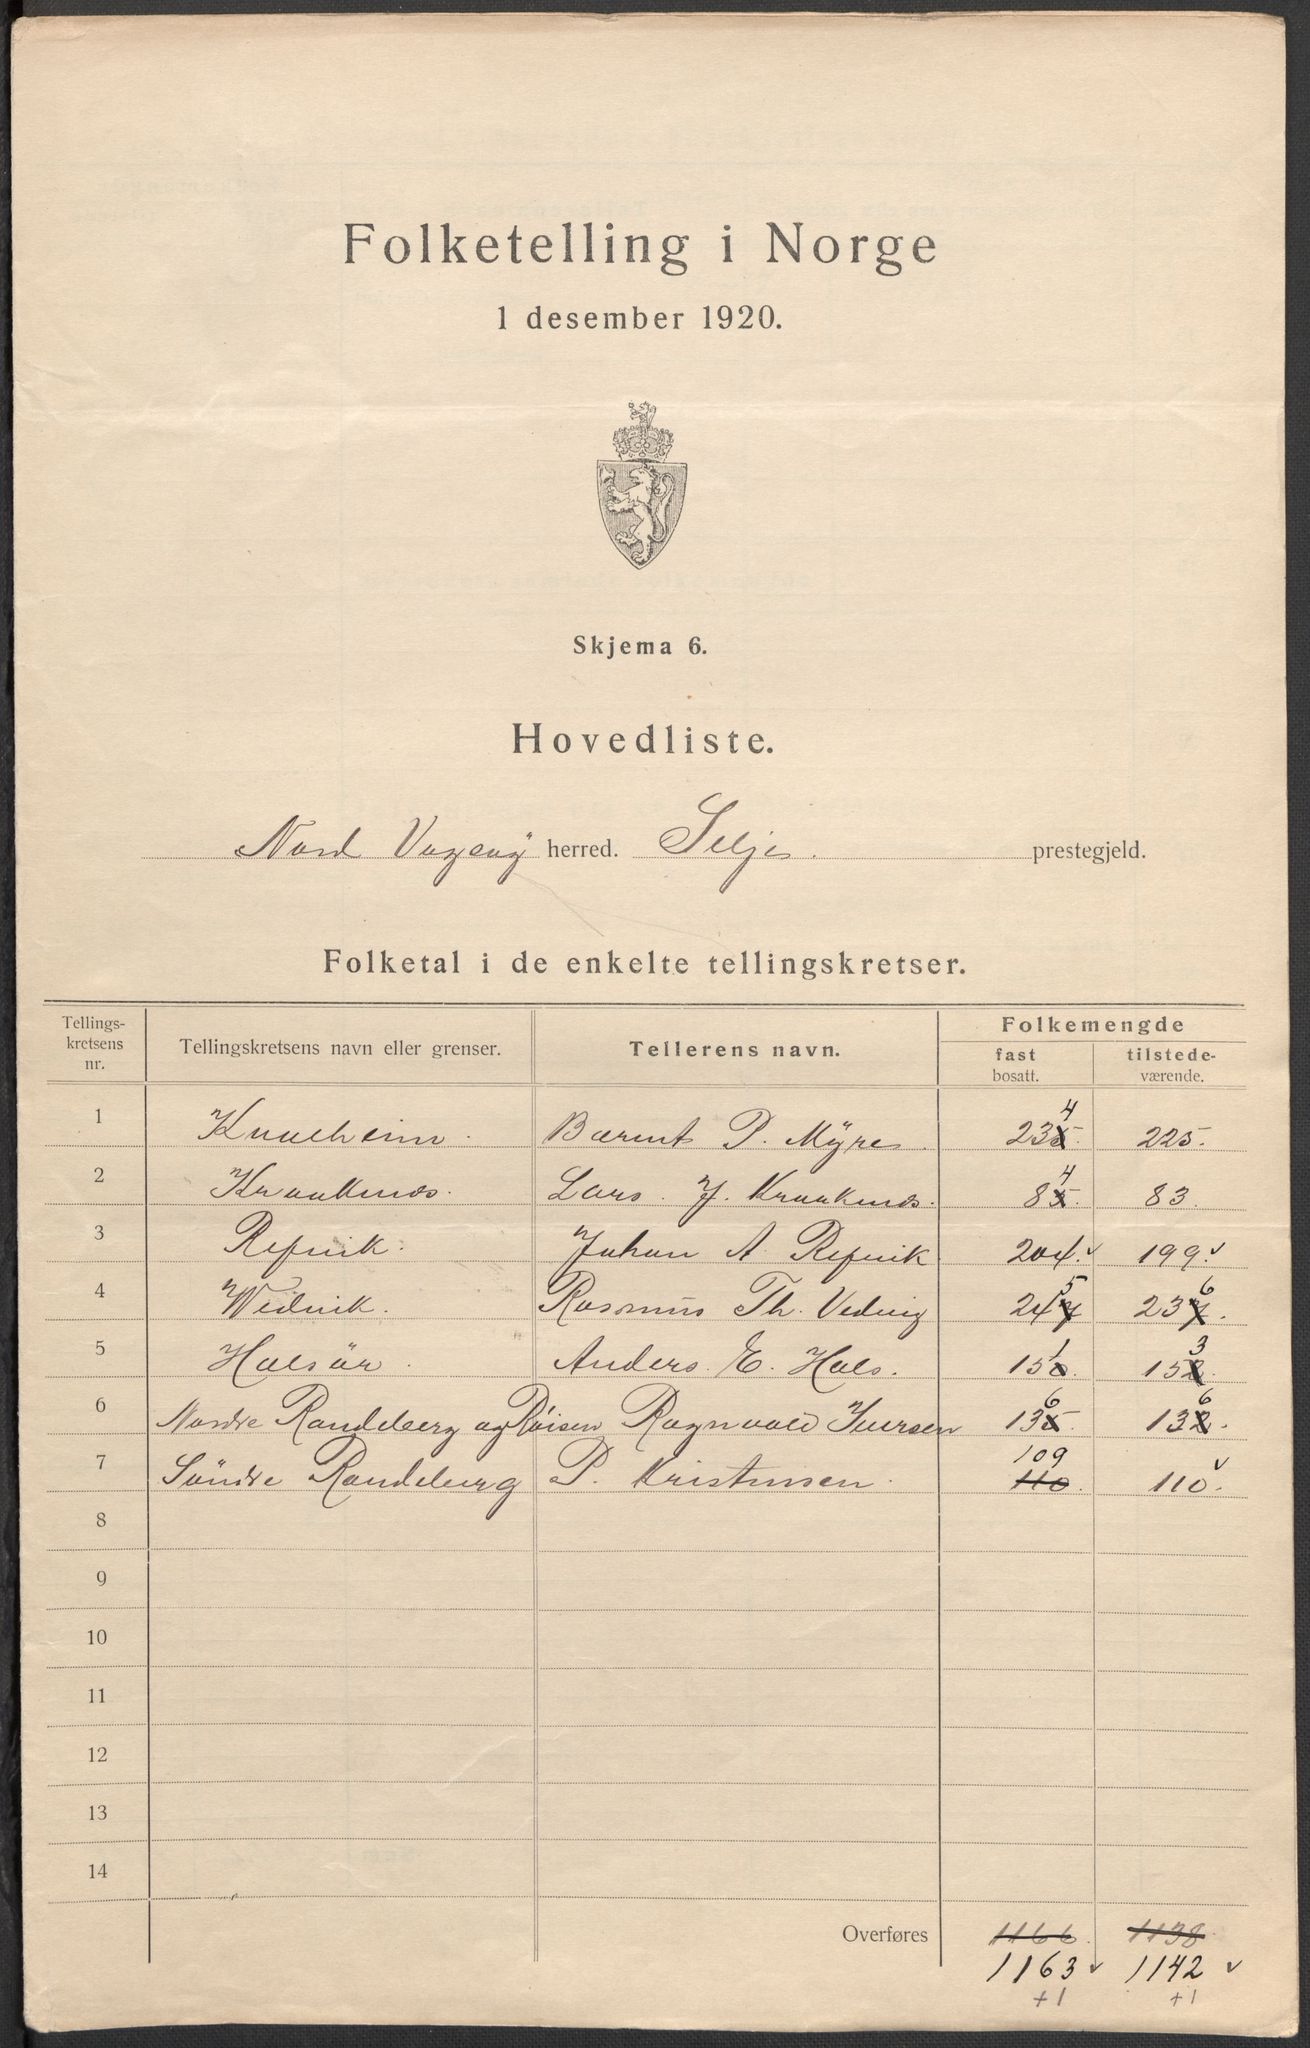 Folketelling i Norge
1 desember 1920.
Skjema 6.
Hovedliste.
Nord Vagsøy herred. Selje. prestegjeld.
Folketal i de enkelte tellingskretser.
Tellings-kretsens nr. Tellingskretsens navn eller grenser. Tellerens navn. Folkemengde fast bosatt. tilstede-værende.
1 Barent P. Myre 235 4 225.
2 Kraakenes. Lars J. Kraakenes. 85 4 83.
3 Refvik. Johan A. Refvik 204. v 199. v
4 Wedvik. Rasmus Th. Vedvig 247 5 237 6.
5 Halsør. Anders E. Hals. 150 1 152 3
6 Nordre Raudeberg og Røisen Ragnvald Iversen 135 6 132 6.
7 Søndre Raudeberg P. Kristensen. 110 109 110. v
8
9
10
11
12
13
14
Overføres 1166 1138
1163 v 1142 v
+1 +1